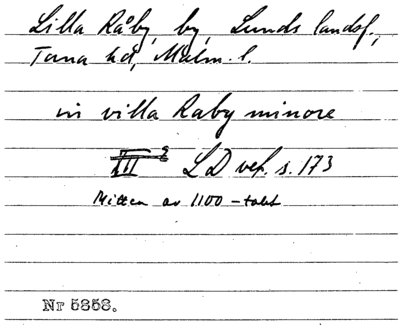 Lilla Råby, by, Lunds landsf.,
Torna hd, Malm. l.
in villa Raby minore
III 2 L D vek. s. 173
Mitten av 1100-talet
Nr 5858.